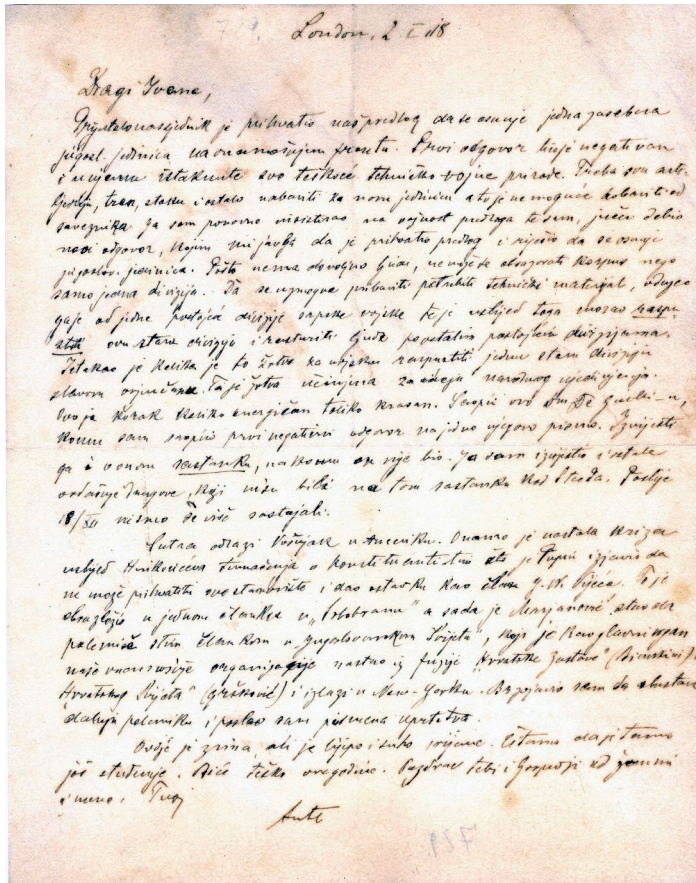 London, 2 I 18
Dragi Ivane,
je prihvatio naš predlog da se osnuje jedna zasebna
jugosl. jedinica na onamošnjem frontu. Prvi odgovor bio je negativan
i istaknute sve teškoće tehničko vojne prirode. Treba svu arti-
ljeriju, tren, stoku i ostalo nabaviti za novu jedinicu a to je nemoguće dobaviti od
saveznika. Ja sam ponovno insistirao na predloga te sam, jučer dobio
novi odgovor, kojim mi javlja da je prihvatio predlog i riješio da se osnuje
jugoslov. jedinica. Pošto nema dovoljno ljudi, ne može se obrazovati korpus nego
samo jedna divizija. Da se uzmogne pribaviti potrebiti tehnički materijal, oduzeo
ga je od jedne postojeće divizije srpske vojske te je uslijed toga morao raspu-
stiti ovu staru diviziju i rasturiti ljude po ostalim postojećim divizijama.
je kolika je to žrtva za vojsku raspustiti jednu staru diviziju
slavom ovjenčanu. Ta je žrtva učinjena za ideju narodnog ujedinjenja.
Ovo je korak koliko energičan toliko krasan. Saopći ovo De Giulli-u,
komu sam saopćio prvi negativni odgovor na jedno njegovo pismo. Izvijesti
ga i o onom sastanku, na komu on nije bio. Ja sam izvijestio i ostale
ovdašnje drugove, koji nisu bili na tom sastanku kod Steeda. Poslije
18/XII nismo se više sastajali.
Sutra odlazi Vošnjak u Ameriku. Onamo je nastala kriza
uslijed Hinkovićeva tumačenja o konstituanti time što je Pupin izjavio da
ne može prihvatiti ovo stanovište i dao ostavku kao član J. N. Vijeća. To je
obrazložio u jednom članku u „Srbobranu" a sada je Marjanović stao da
polemiše s tim člankom u „Jugoslovenskom Svijetu", koji je kao glavni organ
naše organizacije nastao iz fuzije „Hrvatske Zastave" (Biankini) i
„Hrvatskog Svijeta" (Gršković) i izlazi u New-Yorku. Brzojavio sam da obustave
dalnju polemiku i poslao sam pismena uputstva.
Ovdje je zima ali je lijepo i suho vrijeme. Čitamo da je tamo
još studenije. Biće teško ove godine. Pozdrav tebi i Gospodji od žene mi
i mene. Tvoj
Ante
729